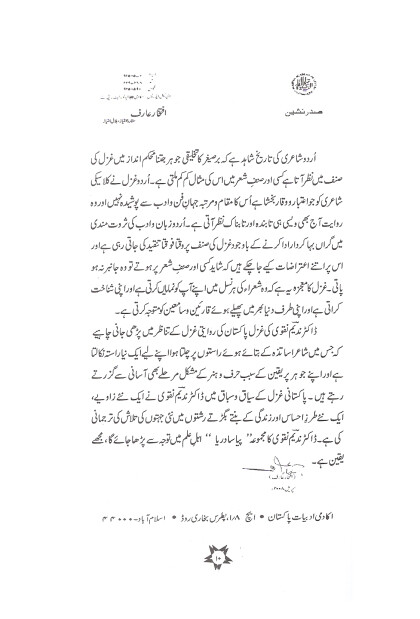 صدر نشین
افتخار عارف
اُردو شاعری کی تاریخ شاہد ہے کہ برصغیر کا تخلیقی جوہر جتنا محکم انداز میں غزل کی
صنف میں نظر آتا ہے کسی اور صنفِ شعر میں اس کی مثال کم کم ملتی ہے۔ اُردو غزل نے کلاسیکی
شاعری کو جو اعتبار و وقار بخشا ہے اُس کا مقام و مرتبہ جہانِ فن و ادب سے پوشیدہ نہیں اور وہ
روایت آج بھی ویسی ہی تابندہ اور تابناک نظر آتی ہے۔ اُردو زبان و ادب کی ثروت مندی
میں گراں بہا کردار ادا کرنے کے باوجود غزل کی صنف پر وقتاً فوقتاً تنقید کی جاتی رہی ہے اور
اس پر اتنے اعتراضات کیے جا چکے ہیں کہ شاید کسی اور صنفِ شعر پر ہوتے تو وہ جانبر نہ ہو
پاتی۔ غزل کا معجزہ یہ ہے کہ وہ شعراء کی ہر نسل میں اپنے آپ کو نمایاں کرتی ہے اور اپنی شناخت
کراتی ہے اور اپنی طرف دنیا بھر میں پھیلے ہوئے قارئین و سامعین کو متوجہ کرتی ہے۔
ڈاکٹر ندیم نقوی کی غزل پاکستان کی روایتی غزل کے تناظر میں پڑھی جانی چاہیے
کہ جس میں شاعر اساتذہ کے بتائے ہوئے راستوں پر چلتا ہوا اپنے لیے ایک نیا راستہ نکالتا
ہے اور اپنے جوہر پر یقین کے سبب حرف و ہنر کے مشکل مرحلے بھی آسانی سے گزرتے
رہتے ہیں۔ پاکستانی غزل کے سیاق و سباق میں ڈاکٹر ندیم نقوی نے ایک نئے زاویے،
ایک نئے طرزِ احساس اور زندگی کے بنتے بگڑتے رشتوں میں نئی جہتوں کی تلاش کی ترجمانی
کی ہے۔ ڈاکٹر ندیم نقوی کا مجموعہ "پیاسا دریا" اہلِ علم میں توجہ سے پڑھا جائے گا، مجھے
یقین ہے۔
(افتخار عارف)
اکادمی ادبیات پاکستان • ایچ ۸/۱، پطرس بخاری روڈ • اسلام آباد-۴۴۰۰۰
۱۰